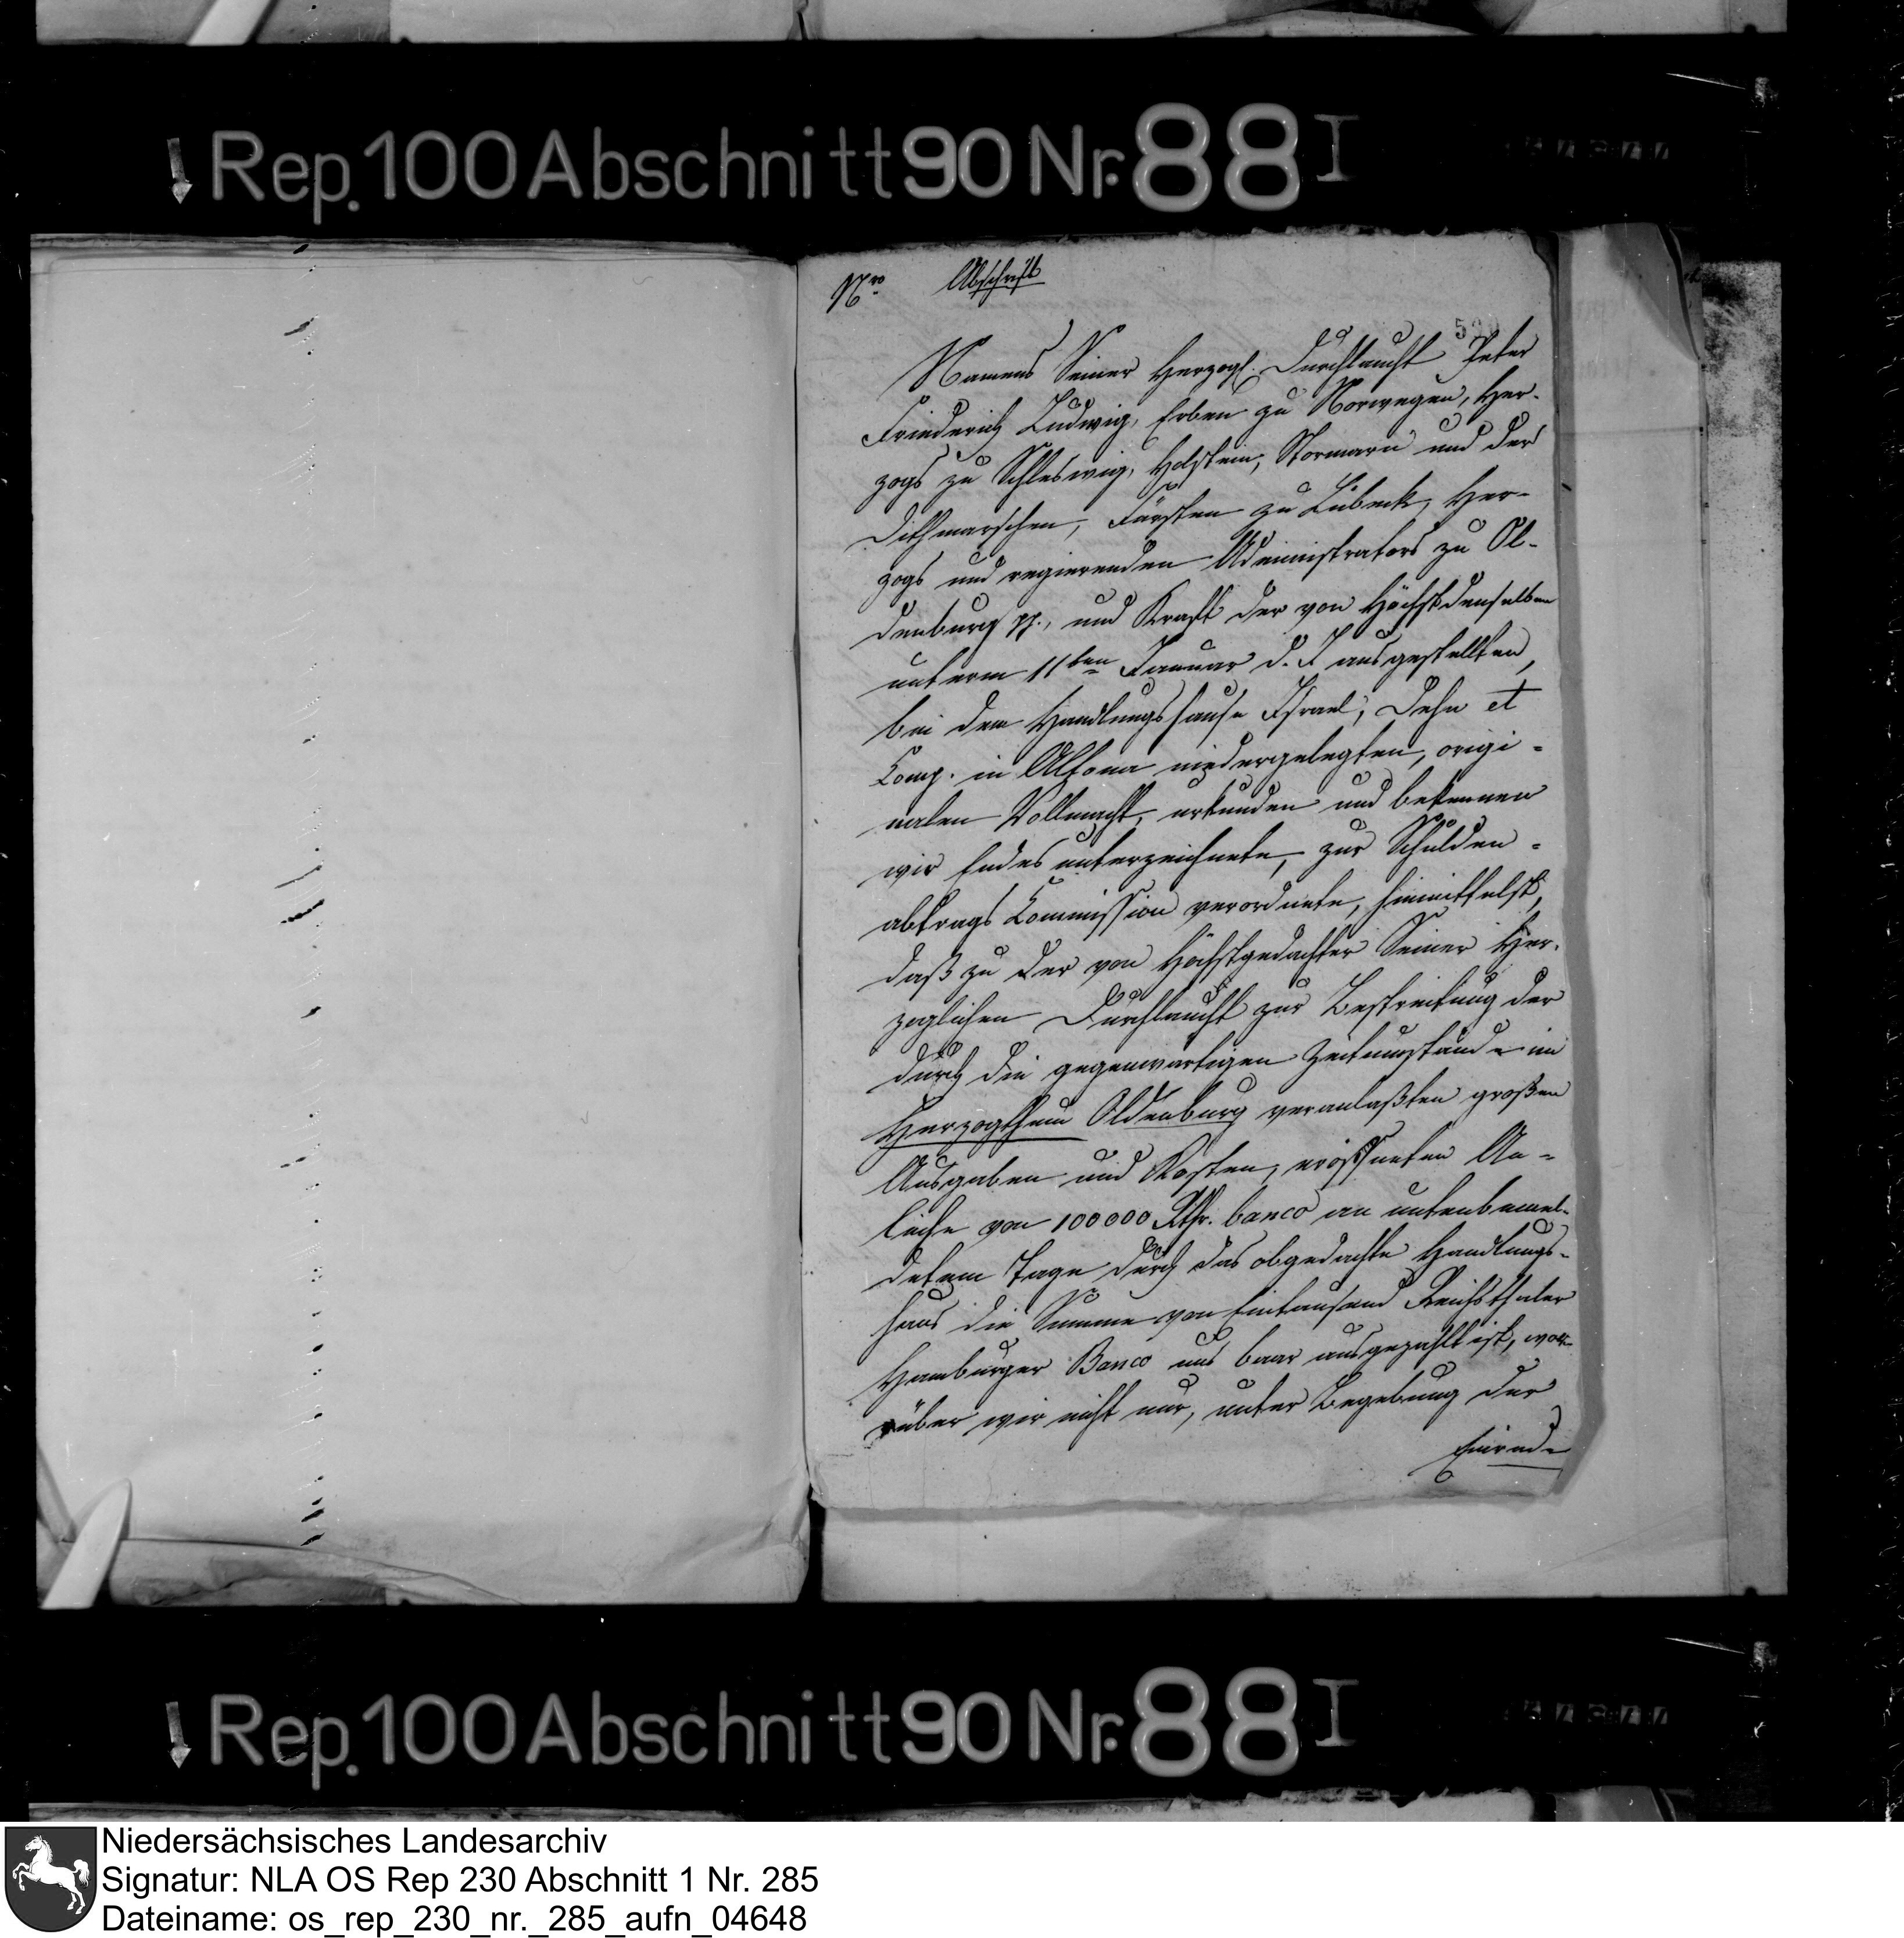 Rep. 100 Abschnitt 90 Nr. 88 I
Nro Abschrift
Namens Seiner Herzogl. Durchlaucht Peter
Friederich Ludwig, Erben zu Norwegen, Her-
zogs zu Schleswig, Holstein, Stormarn und der
Dithmarschen, Fürsten zu Lübeck, Her-
zogs und regierenden Administrators zu Ol-
denburg pp., und Kraft der von Höchstdenselben
unterm 11ten Januar d. J ausgestellten,
bei dem Handlungshause Israel, Dehn et
Comp. in Altona niedergelegten, origi-
nalen Vollmacht, urkunden und bekennen
wir Endes unterzeichnete, zur Schulden-
abtrags Commission verordnete, hiemittelst,
daß zu der von Höchstgedachter Seiner Her-
zoglichen Durchlaucht zur Bestreitung der
durch die gegenwärtigen Zeitumstände im
Herzogthum Oldenburg veranlaßten großen
Ausgaben und Kosten, eröffneten An-
leihe von 100000 Rthr. banco an untenbemel-
detem Tage durch das obgedachte Handlungs-
haus die Summe von Eintausend Reichsthaler
Hamburger Banco uns baar ausgezahlt ist, wor-
über wir nicht nur, unter Begebung der
Einrede
Rep. 100 Abschnitt 90 Nr. 88 I
Niedersächsisches Landesarchiv
Signatur: NLA OS Rep 230 Abschnitt 1 Nr. 285
Dateiname: os_rep_230_nr._285_aufn_04648